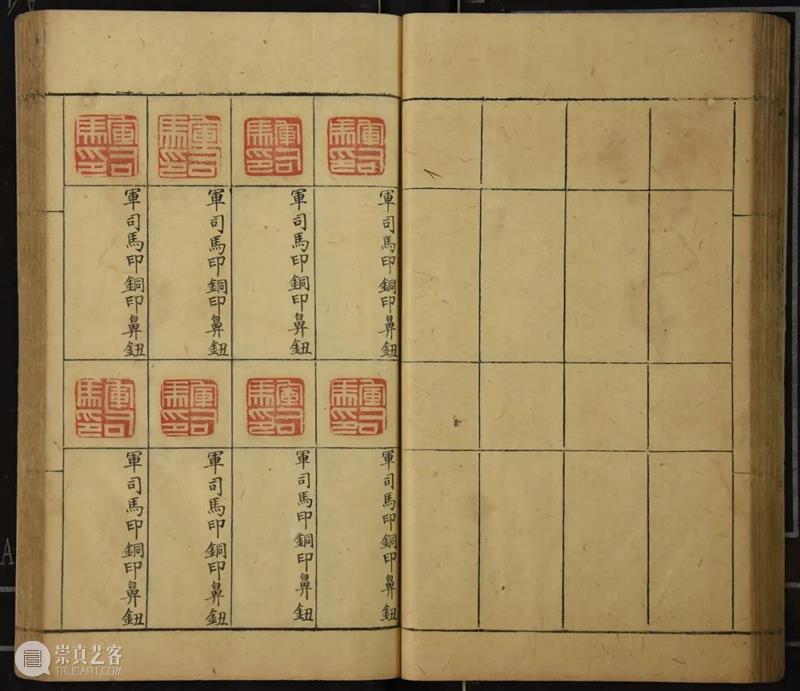 軍司馬印
軍司馬印銅印鼻鈕
軍司馬印
軍司馬印銅印鼻鈕
軍司馬印
軍司馬印銅印鼻鈕
軍司馬印
軍司馬印銅印鼻鈕
軍司馬印
軍司馬印銅印鼻鈕
軍司馬印
軍司馬印銅印鼻鈕
軍司馬印
軍司馬印銅印鼻鈕
軍司馬印
軍司馬印銅印鼻鈕
A
崇真艺客
TRUEART.COM